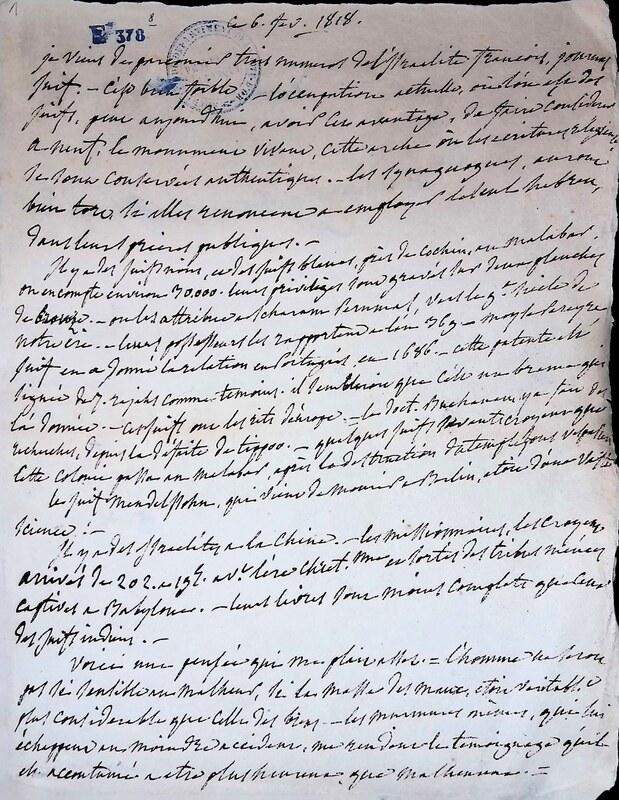 1
E 378 8
ce 6. fev. 1818.
je viens de parcourir trois numeros de l'israelite francois, journal
juif. - c'est bien foible - l'occupation actuelle, où l'on est des
juifs, peut aujourdhui, avoir cet avantage, de faire considerer
a neuf, le monument vivant, cette arche où les ecritures
se sont conservées authentiques. - les synagogues, auront
bien tort, si elles renoncent a employer le seul hebreu,
dans leurs prieres publiques. -
Il y a des juifs noirs, et des juifs blancs, près de Cochin, au malabar,
on en compte environ 30.000. leurs privileges sont gravés sur deux planches
de bronze. - on les attribue a scharam perumal, vers le 9e siecle de
notre ere. - leurs possesseurs les rapportent a l'an 369 - moyse Pereyra
juif en a donné la relation en Portugais en 1686. - cette patente est
signée de 7. rajahs comme temoins. il que c'est un brame qui
l'a donnée. - ces juifs ont les rits d'Europe. - le doct. Buchanan, y a fait des
recherches, depuis la défaite de tippoo. - quelques juifs savants croyent que
cette colonie passa au malabar, après la destruction du temple sous vespasien
le juif Mendelsohn, qui vient de mourir a Berlin, etoit d'une vaste
science. -
Il y a des israelites a la Chine. - les missionnaires, les croyent
arrivés de 202. a 195. av. l'ère chret. et sortis des tribus menées
captives a Babylone. - leurs livres sont moins complets que ceux
des juifs indiens. -
Voici une pensée qui me plait assez. = l'homme ne seroit
pas si sensible au malheur, si la masse des maux, etoit veritabl.t
plus considerable que celle des biens - les murmures mêmes, qui lui
échappent au moindre accident, me rendent le temoignage qu'il
est accoutumé a etre plus heureux que malheureux. =